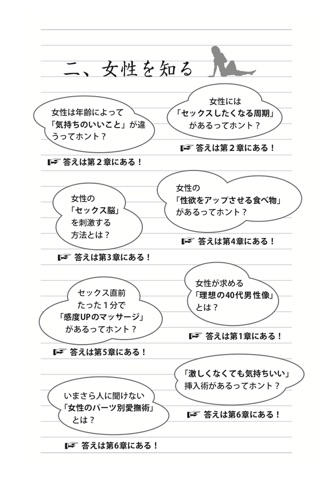 二、女性を知る
女性は年齢によって
「気持ちのいいこと」が違
うってホント？
答えは第２章にある！
女性には
「セックスしたくなる周期」
があるってホント？
答えは第２章にある！
女性の
「セックス脳」
を刺激する
方法とは？
答えは第3章にある！
女性の
「性欲をアップさせる食べ物」
があるってホント？
答えは第4章にある！
セックス直前
たった１分で
「感度UPのマッサージ」
があるってホント？
答えは第5章にある！
女性が求める
「理想の40代男性像」
とは？
答えは第1章にある！
いまさら人に聞けない
「女性のパーツ別愛撫術」
とは？
答えは第6章にある！
「激しくなくても気持ちいい」
挿入術があるってホント？
答えは第6章にある！